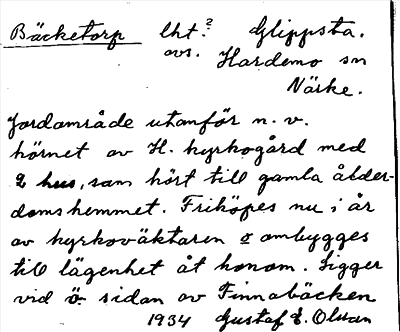 Bäcketorp lht.? Glippsta.
avs. Hardemo sn
Närke.
Jordområde utanför n.v.
hörnet av H. kyrkogård med
2 hus, som hört till gamla ålder-
domshemmet. Friköpes nu i år
av kyrkoväktaren o ombygges
till lägenhet åt honom. Ligger
vid ö. sidan av Finnabäcken
1934 Gustaf E. Olsson